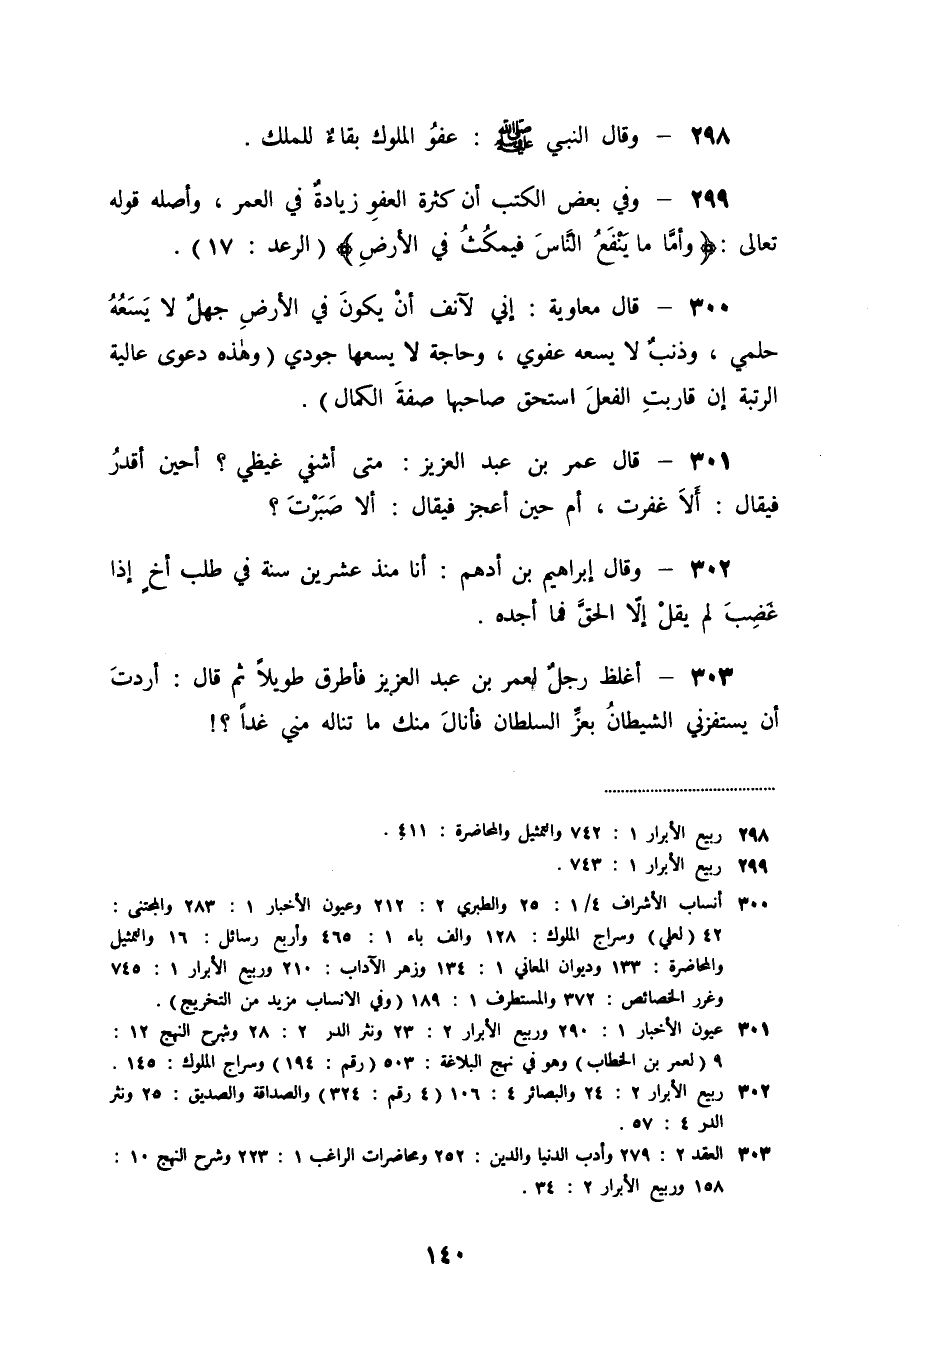 ٢٩٨ – وقال النبي ﷺ : عفوُ الملوك بقاءٌ للملك .
٢٩٩ – وفي بعض الكتب أن كثرة العفوِ زيادةٌ في العمر ، وأصله قوله
تعالى : ﴿ وأمَّا ما يَنْفَعُ النَّاسَ فيمكُثُ في الأرضِ ﴾ ( الرعد : ١٧ ) .
٣٠٠ – قال معاوية : إني لآنف أنْ يكونَ في الأرضِ جهلٌ لا يَسَعُهُ
حلمي ، وذنبٌ لا يسعه عفوي ، وحاجة لا يسعها جودي ( وهٰذه دعوى عالية
الرتبة إن قاربتِ الفعلَ استحق صاحبها صفةَ الكمال ) .
٣٠١ – قال عمر بن عبد العزيز : متى أشفي غيظي ؟ أحين أقدرُ
فيقال : أَلاَ غفرت ، أم حين أعجز فيقال : ألا صَبَرْتَ ؟
٣٠٢ – وقال إبراهيم بن أدهم : أنا منذ عشرين سنة في طلب أخٍ إذا
غَضِبَ لم يقلْ إلّا الحقَّ فما أجده .
٣٠٣ – أغلظ رجلٌ لعمر بن عبد العزيز فأطرق طويلاً ثم قال : أردتَ
أن يستفزني الشيطانُ بعزِّ السلطان فأنالَ منك ما تناله مني غداً ؟!
٢٩٨ ربيع الأبرار ١ : ٧٤٢ والتمثيل والمحاضرة : ٤١١ .
٢٩٩ ربيع الأبرار ١ : ٧٤٣ .
٣٠٠ أنساب الأشراف ٤/ ١ : ٢٥ والطبري ٢ : ٢١٢ وعيون الأخبار ١ : ٢٨٣ والمجتنى :
٤٢ (لعلي) وسراج الملوك : ١٢٨ والف باء ١ : ٤٦٥ وأربع رسائل : ١٦ والتمثيل
والمحاضرة : ١٣٣ وديوان المعاني ١ : ١٣٤ وزهر الآداب : ٢١٠ وربيع الأبرار ١ : ٧٤٥
وغرر الخصائص : ٣٧٢ والمستطرف ١ : ١٨٩ (وفي الانساب مزيد من التخريج) .
٣٠١ عيون الأخبار ١ : ٢٩٠ وربيع الأبرار ٢ : ٢٣ ونثر الدر ٢ : ٢٨ وشرح النهج ١٢ :
٩ (لعمر بن الخطاب) وهو في نهج البلاغة : ٥٠٣ (رقم : ١٩٤) وسراج الملوك : ١٤٥ .
٣٠٢ ربيع الأبرار ٢ : ٢٤ والبصائر ٤ : ١٠٦ (٤ رقم : ٣٢٤) والصداقة والصديق : ٢٥ ونثر
الدر ٤ : ٥٧ .
٣٠٣ العقد ٢ : ٢٧٩ وأدب الدنيا والدين : ٢٥٢ ومحاضرات الراغب ١ : ٢٢٣ وشرح النهج ١٠ :
١٥٨ وربيع الأبرار ٢ : ٣٤ .
١٤٠